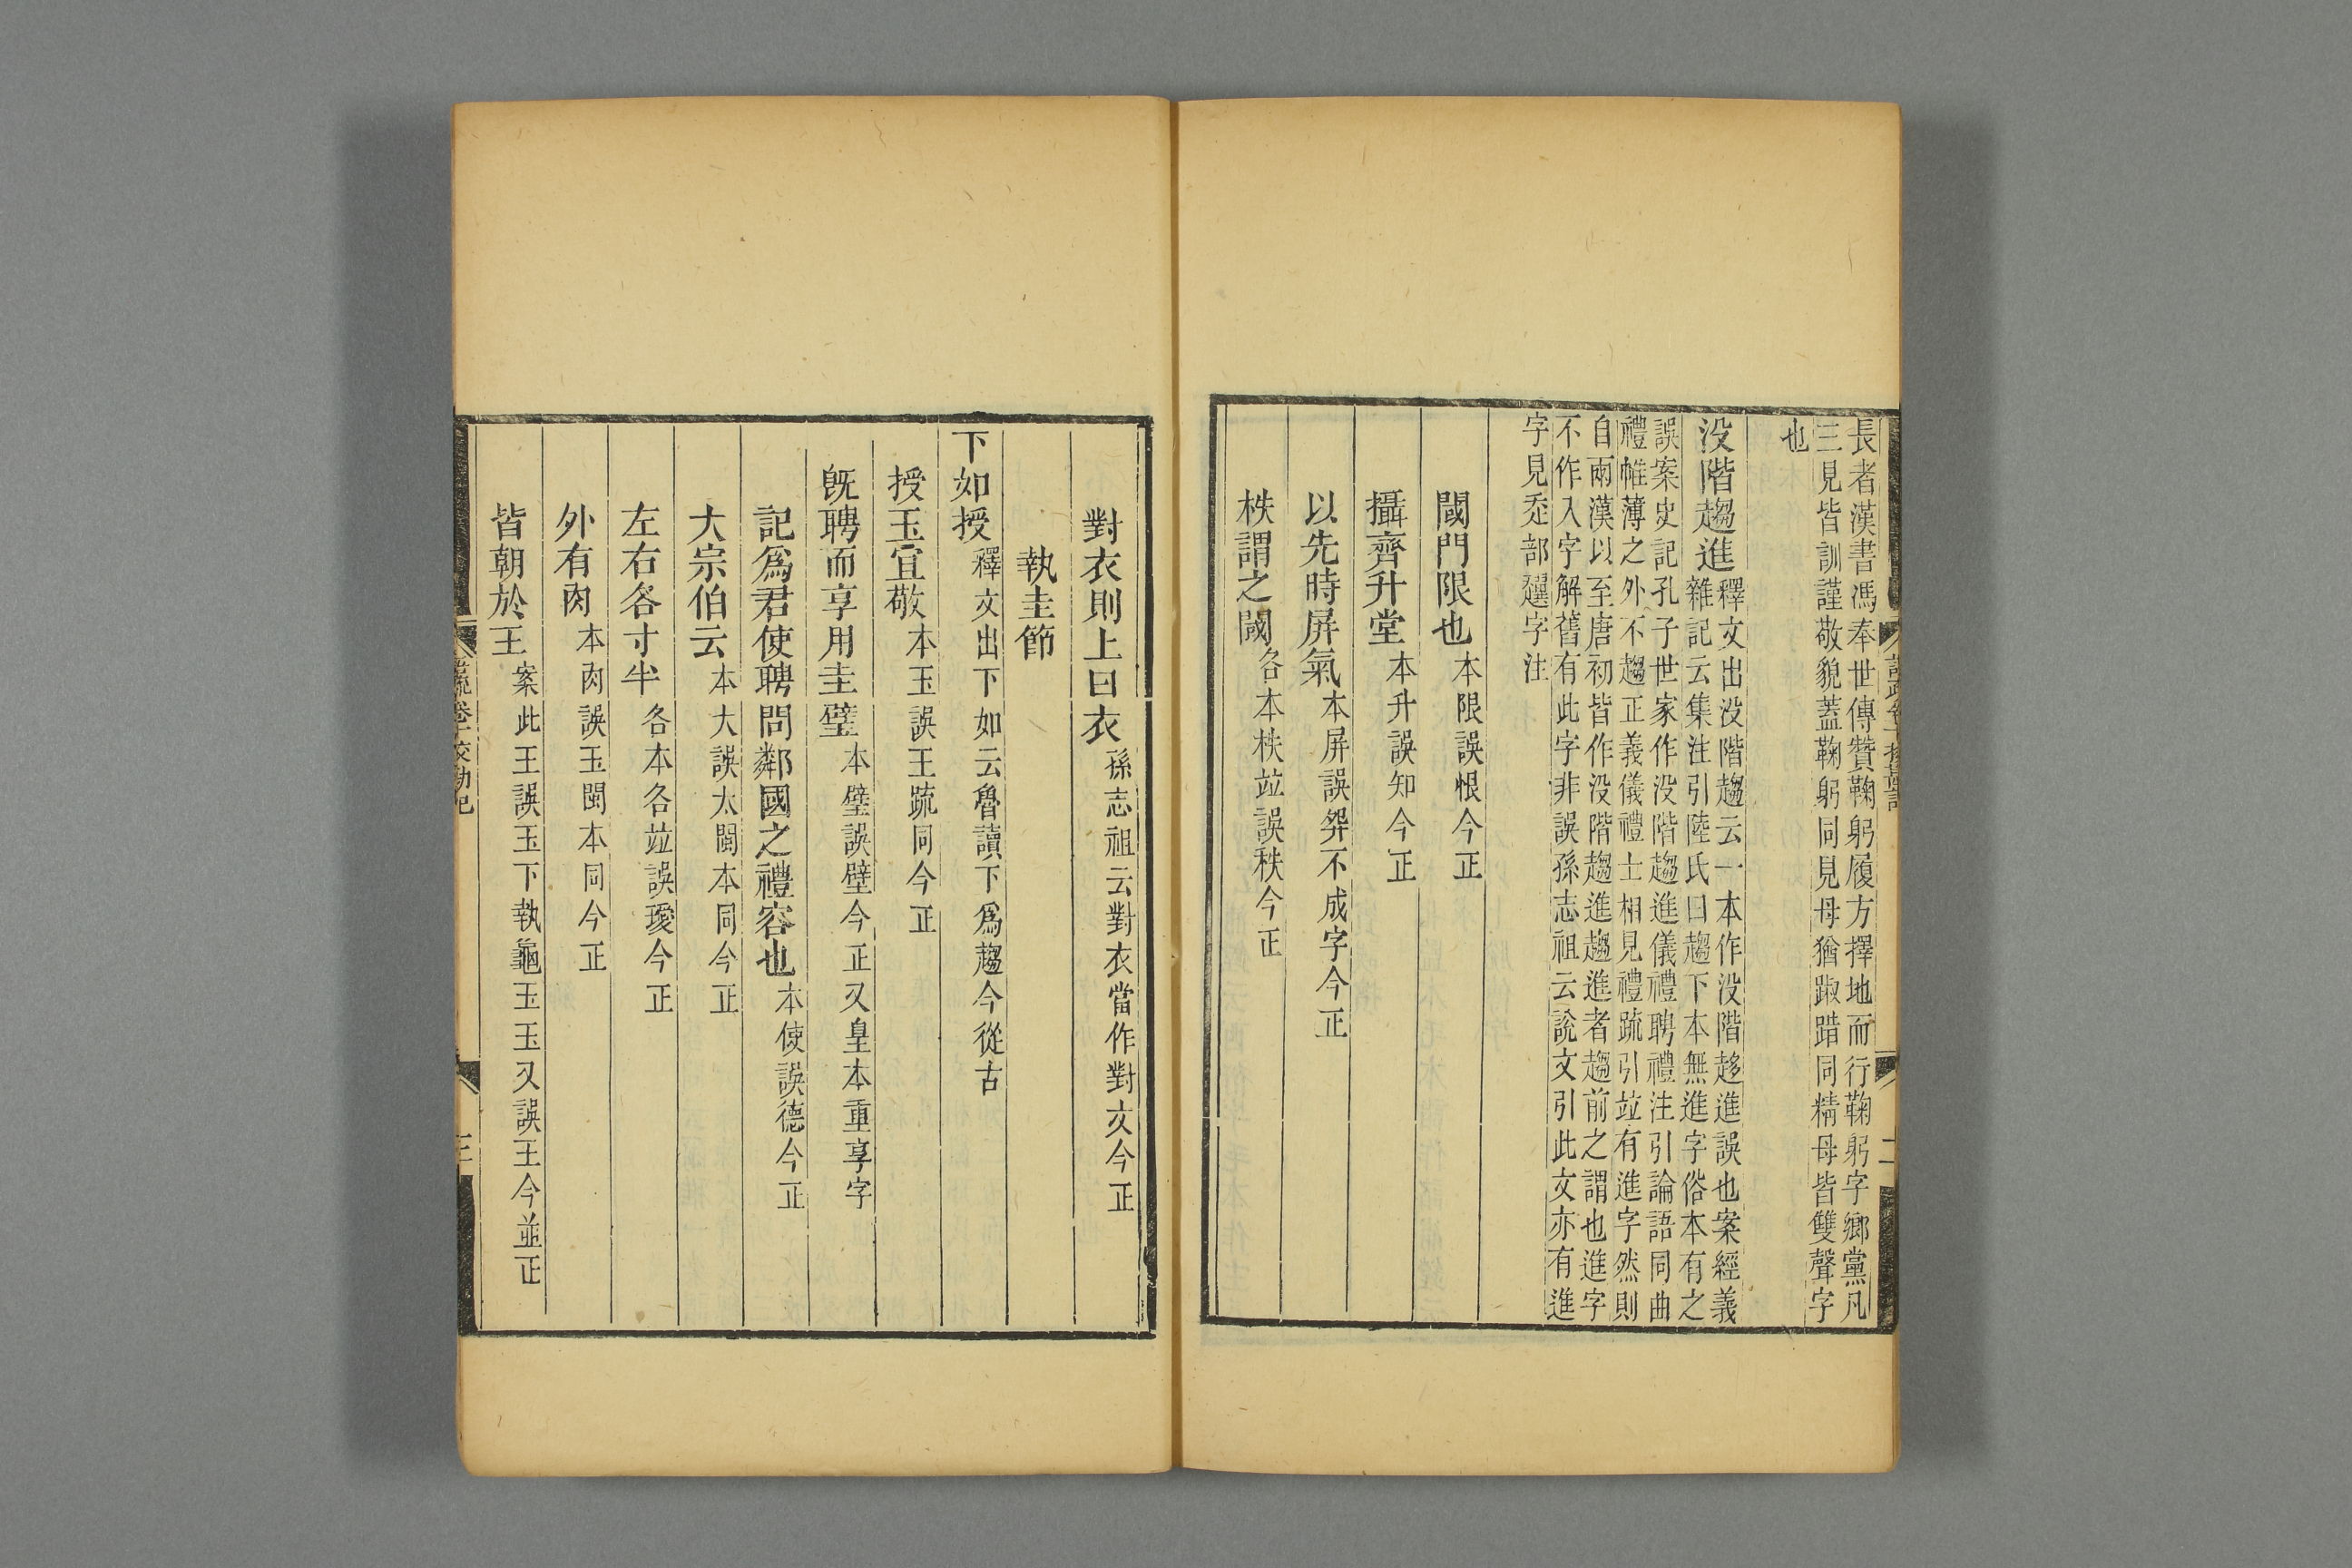 長者漢書馮奉世傳贊鞠躬履方擇地而行鞠躬字鄉黨凡
三見皆訓謹敬貌蓋鞠躬同見母猶踧踖同精母皆雙聲字
也
没階趨進釋文出没階趨云一本作没階趍進誤也案經義
雜記云集注引陸氏曰趨下本無進字俗本有之
誤案史記孔子世家作没階趨進儀禮聘禮注引論語同曲
禮帷薄之外不趨正義儀禮士相見禮疏引竝有進字然則
自兩漢以至唐初皆作没階趨進趨進者趨前之謂也進字
不作入字解舊有此字非誤孫志祖云說文引此文亦有進
字見走部𧽐字注
閾門限也本限誤恨今正
攝齊升堂本升誤知今正
以先時屏氣本屏誤𢍉不成字今正
柣謂之閾各本柣竝誤秩今正
對衣則上曰衣孫志祖云對衣當作對文今正
執圭節
下如授釋文出下如云魯讀下爲趨今從古
授玉宜敬本玉誤王疏同今正
旣聘而享用圭璧本璧誤壁今正又皇本重享字
記爲君使聘問鄰國之禮容也本使誤德今正
大宗伯云本大誤太閩本同今正
左右各寸半各本各竝誤瑷今正
外有肉本肉誤玉閩本同今正
皆朝於王案此王誤玉下執龜玉玉又誤王今並正
疏卷十校勘記
三